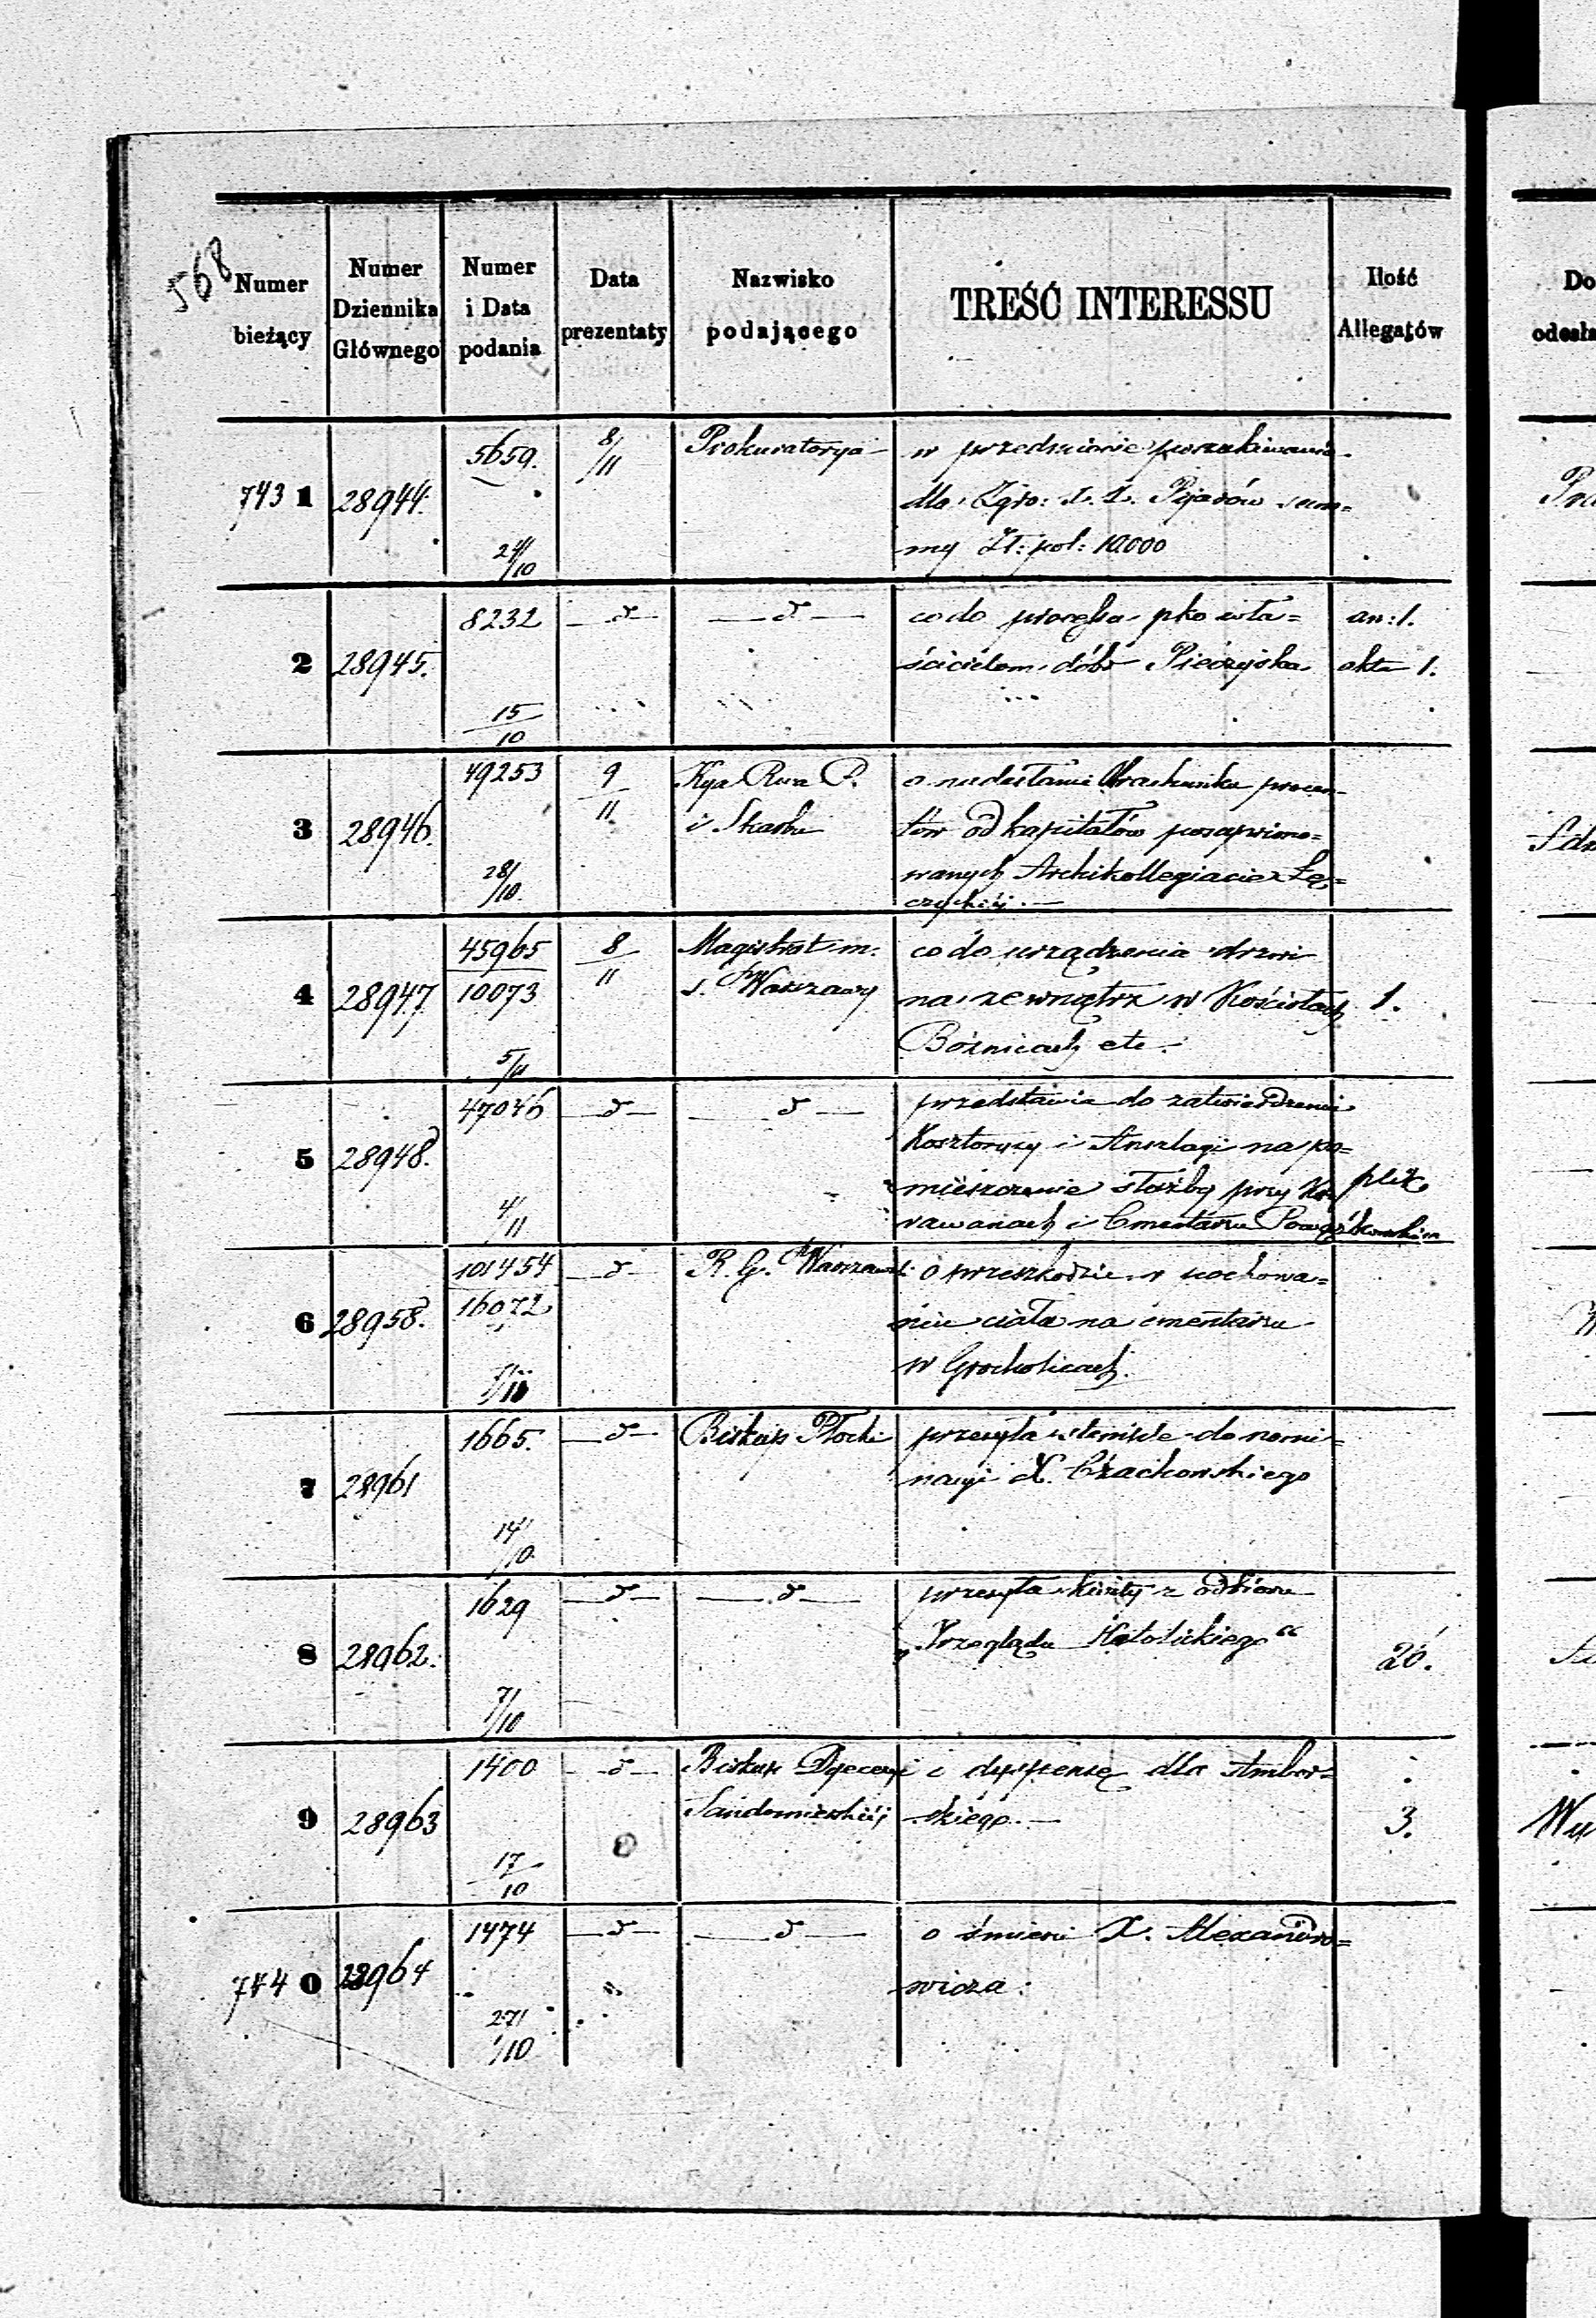 568
Numer bieżący
Numer Dziennika Głównego
Numer i Data podania
Data prezentaty
Nazwisko podającego
TREŚĆ INTERESSU
Ilość Allegatów
Do
odesła
743 1 28944. 5659. 24/10 8/11 Prokuratorya w przedmiocie poszukiwania
dla Zgro: X. X. Pijarów sum=
my Zł: pol: 10.000
2 28945. 8232 15/10 —d— —d— co do processu pko wła= an: 1.
ścicielom dóbr akta 1.
3 28946. 49253 28/10 9/11 Kya Rzą P. o nadesłanie Obrachunku procen=
i Skarbu tów od kapitałów
wanych Archikollegiacie Łę=
czyckiéj.—
4 28947. 45965/10073 5/11 8/11 Magistrat m. co do urządzenia drzwi
s. Warszawy na zewnątrz w Kościołach 1.
Bóżnicach etc.
5 28948. 47046 4/11 —d— —d— przedstawia do zatwierdzenia
Kosztorysy i Anszlagi na po=
mieszczenie służby przy Ka= plik
rawanach i Cmentarzu Powązkowskim
6 28958. 101454/16072 —d— R. G. Warszaws. o przeszkodzie w pochowa=
niu ciała na cmentarzu
w Grocholicach.
7 28961 1665. 14/10 —d— Biskup Płocki przesyła stemple do nomi=
nacyi X. Czackowskiego
8 28962. 1629 7/10 —d— —d— przesyła kwity z odbioru
„Przeglądu Katolickiego“ 20.
9 28963 1400 17/10 —d— Biskup Dyecezyi o dyspensę dla Ambor=
Sandomierskiéj skiego.— 3.
744 0 28964 1474 27/10 —d— —d— o śmierci X. Alexandro=
wicza.